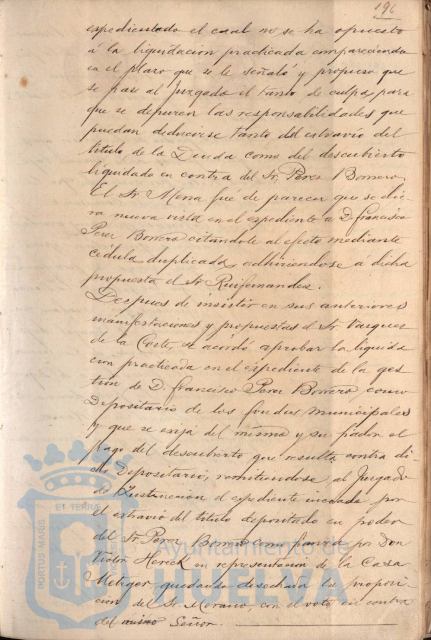 196
expedientado el cual no se ha opuesto
á la liquidacion practicada compareciendo
en el plazo que se le señaló y propuso que
se pase al juzgado el tanto de culpa para
que se depuren las responsabilidades que
puedan deducirse tanto del estravio del
titulo de la Deuda como del descubierto
liquidado en contra del Sr. Perez Borrero.
El Sr. Mora fue de parecer que se die-
ra nueva vista en el expediente a D. Francisco
Perez Borrero citandole al efecto mediante
cédula duplicada, adhiriendose a dicha
propuesta el Sr. Ruifernandez.
Despues de insistir en sus anteriores
manifestaciones y propuestas el Sr. Vazquez
de la Corte, se acordó aprobar la liquida
cion practicada en el expediente de la ges
tion de D. Francisco Perez Borrero como
Depositario de los fondos municipales
y que se exija del mismo y su fiador el
pago del descubierto que resulta contra di
cho Depositario, remitiendose al Juzgado
de Instruccion el expediente incoado por
el estravio del titulo depositado en poder
del Sr. Perez Borrero como fianza por Don
Victor Herck en representacion de la Casa
Metzger quedando desechada la proposi-
cion del Sr. Morano, con el voto en contra
del mismo Señor.
ET TERRAE
PORTUS MARIS
Ayuntamiento de
HUELVA